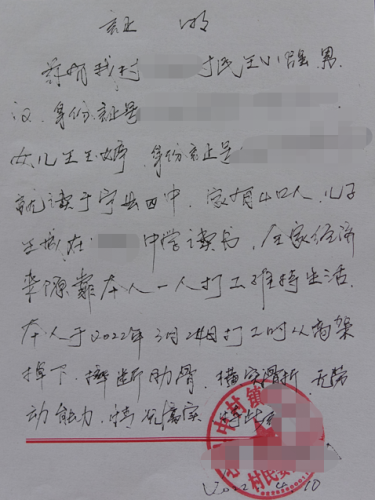 证 明
兹有我村 村民王小强 男
汉、身份证号
女儿王玉婷 身份证号
就读于宁县四中,家有4口人,儿子
在 中学读书,全家经济
来源靠本人一人打工维持生活.
本人于2022年3月24日打工时从高架
掉下,摔断肋骨,横突骨折,无劳
动能力,情况属实 特此
中村镇
村民委
2022 4 10